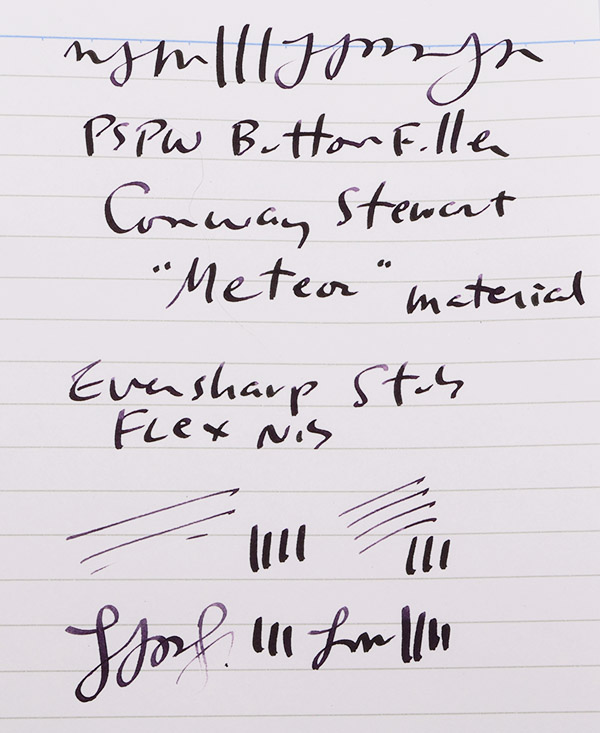 PSPW Button Filler
Conway Stewart
"Meteor" material
Eversharp Stub
Flex Nib